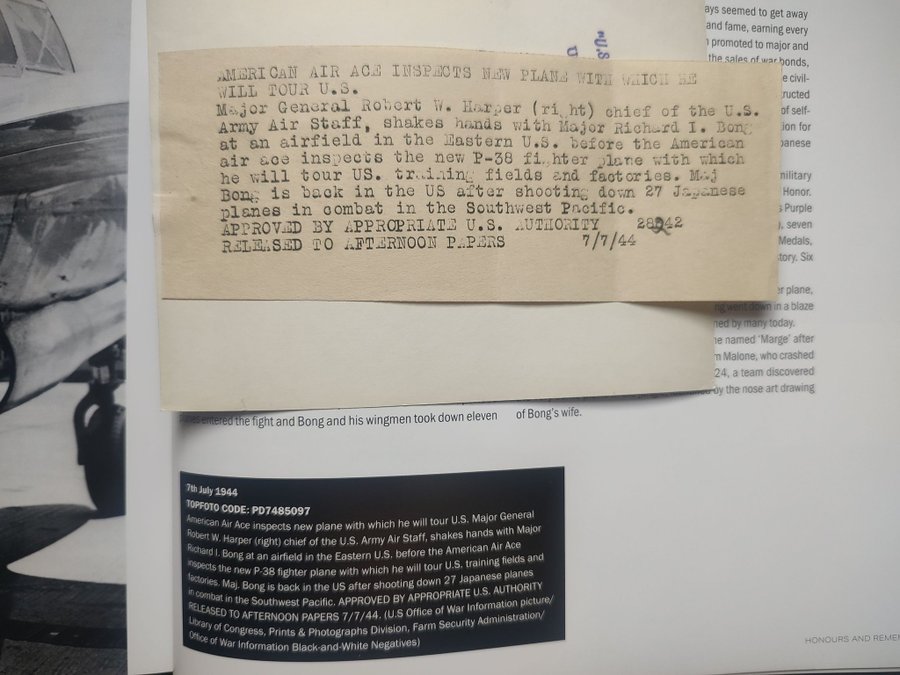 "U.S
AMERICAN AIR ACE INSPECTS NEW PLANE WITH WHICH HE
WILL TOUR U.S.
Major General Robert W. Harper (right) chief of the U.S.
Army Air Staff, shakes hands with Major Richard I. Bong
at an airfield in the Eastern U.S. before the American
air ace inspects the new P-38 fighter plane with which
he will tour US. training fields and factories. Maj
Bong is back in the US after shooting down 27 Japanese
planes in combat in the Southwest Pacific.
APPROVED BY APPROPRIATE U.S. AUTHORITY 28242
RELEASED TO AFTERNOON PAPERS 7/7/44
seemed to get away
and fame, earning every
promoted to major and
the sales of war bonds,
of self-
for
military
Honor.
Purple
seven
Medals,
Six
plane,
went down in a blaze
by many today.
named 'Marge' after
Malone, who crashed
24, a team discovered
by the nose art drawing
entered the fight and Bong and his wingmen took down eleven
of Bong's wife.
7th July 1944
TOPFOTO CODE: PD7485097
American Air Ace inspects new plane with which he will tour U.S. Major General
Robert W. Harper (right) chief of the U.S. Army Air Staff, shakes hands with Major
Richard I. Bong at an airfield in the Eastern U.S. before the American Air Ace
inspects the new P-38 fighter plane with which he will tour U.S. training fields and
factories. Maj. Bong is back in the US after shooting down 27 Japanese planes
in combat in the Southwest Pacific. APPROVED BY APPROPRIATE U.S. AUTHORITY
RELEASED TO AFTERNOON PAPERS 7/7/44. (U.S Office of War Information picture/
Library of Congress, Prints & Photographs Division, Farm Security Administration/
Office of War Information Black-and-White Negatives)
HONOURS AND